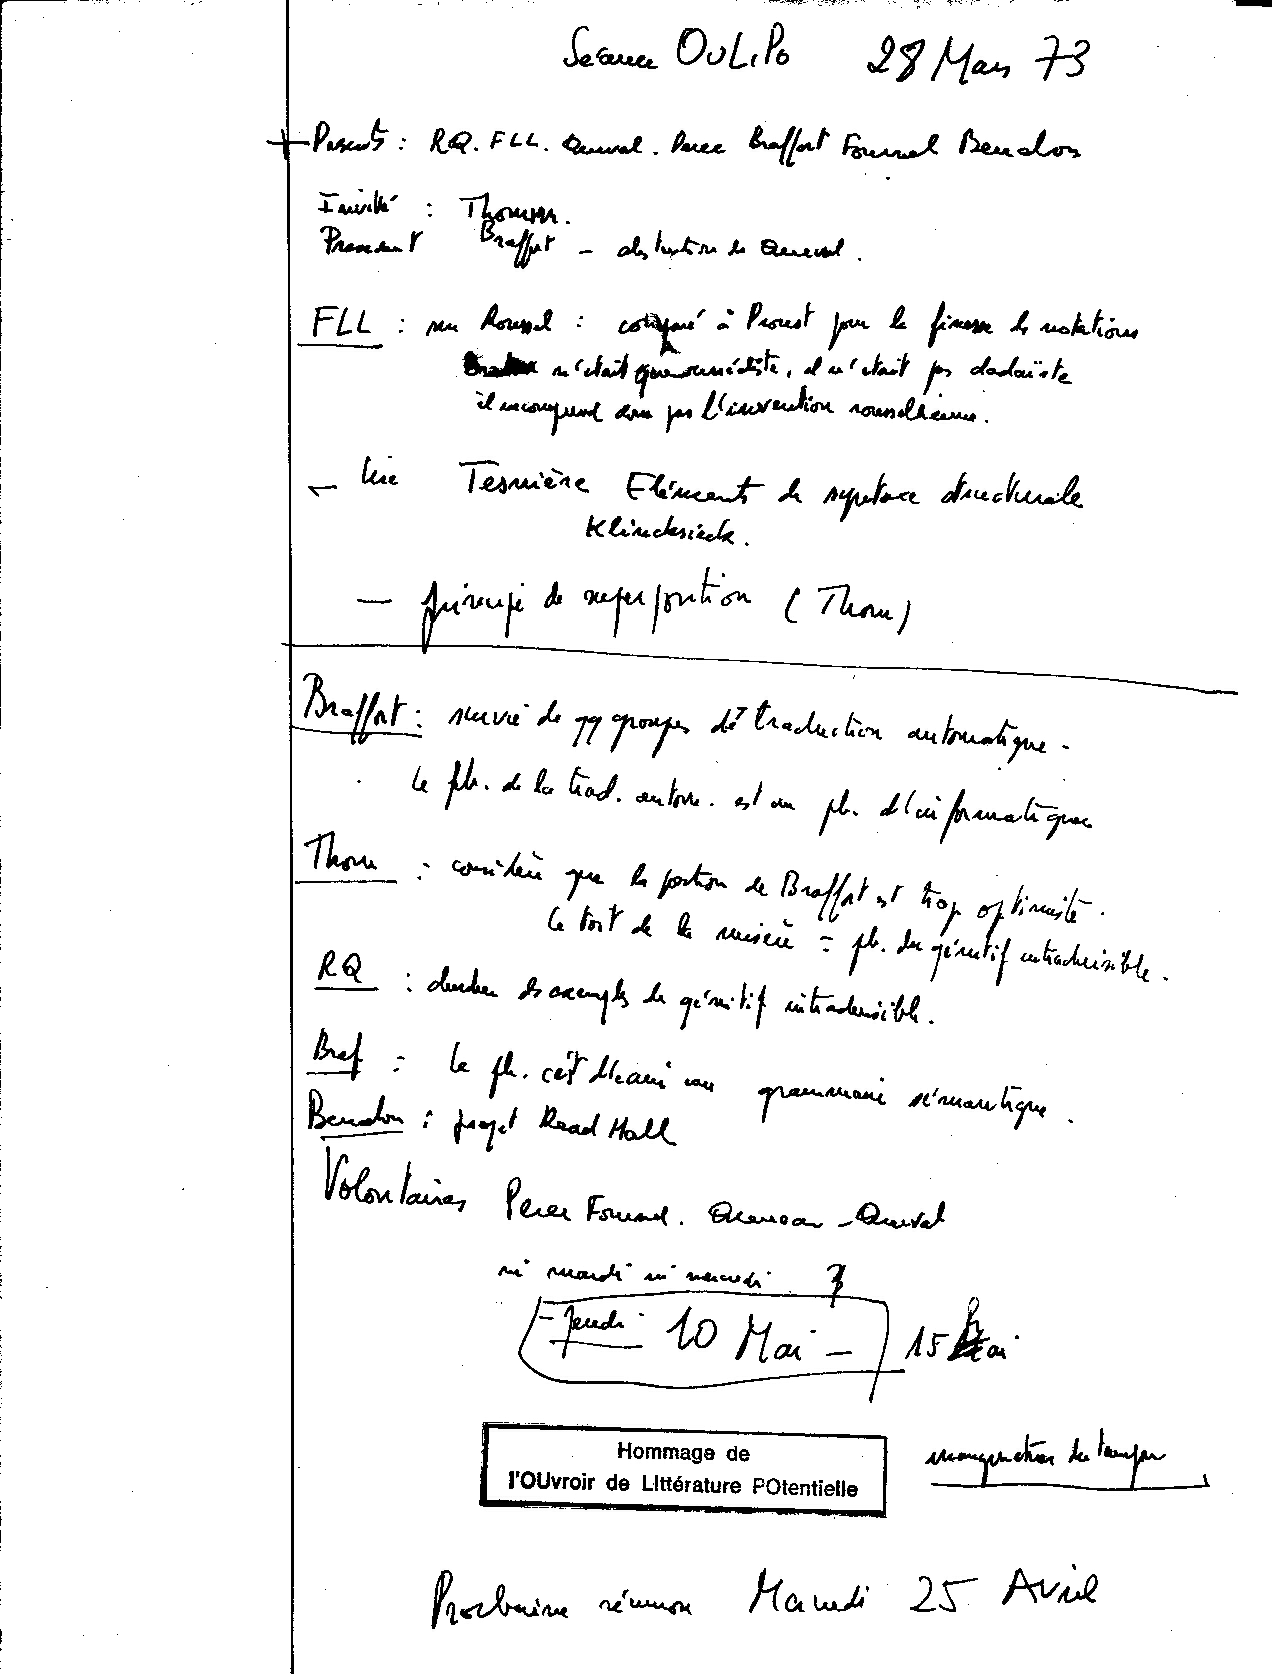 Séance OULIPO 28 Mars 73
Présents : RQ. FLL. Queval. Perec Braffort Fournel Benabou
Invité : Thom
Président Braffort - de Queval.
FLL : sur Roussel : comparé à Proust pour la finesse de notations
n'était que , il n'était pas dadaïste
il ne comprend donc pas l'invention roussellienne.
- lire Tesnière Eléments de syntaxe structurale
Klincksieck.
- principe de superposition (Thom)
Braffort : survie de qq groupes de traduction automatique.
Le pb. de la trad. autom. est un pb. d'informatique
Thom : considère que la position de Braffort est trop optimiste.
Le toit de la misère = pb. du génitif intraduisible.
RQ : chercher des exemples de génitif intraduisible.
Braf : le pb. c'est d'écrire une grammaire sémantique.
Benabou : projet Read Hall
Volontaires Perec Fournel. Queneau - Queval
ni mardi ni mercredi ?
- jeudi 10 Mai - 15 Mai
Hommage de
l'OUvroir de LIttérature POtentielle
inauguration du tampon
Prochaine réunion Mercredi 25 Avril